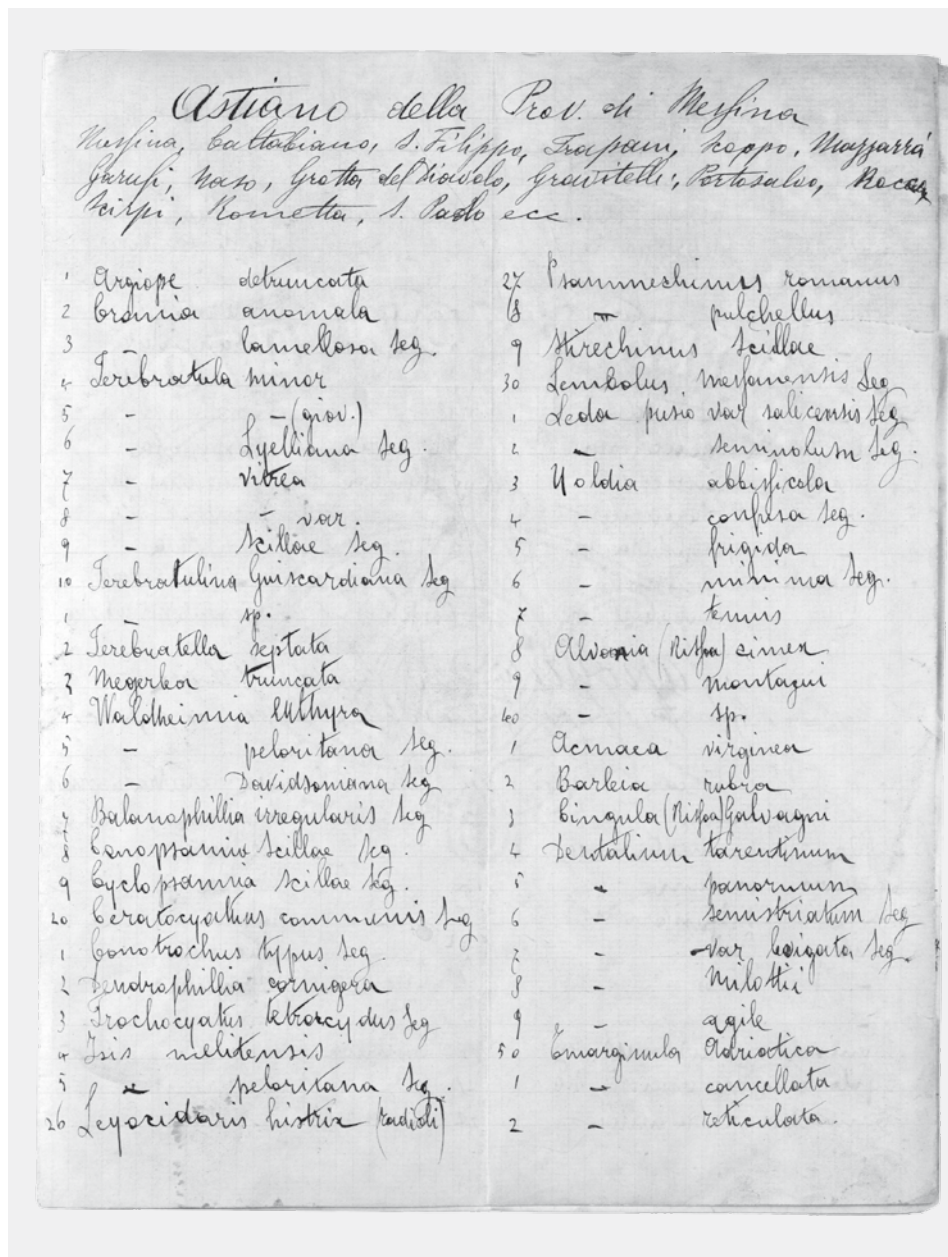 Astiano della Prov. di Messina
Messina, Caltabiano, S. Filippo, Trapani, Scoppo, Mazzarrá
Garufi, Naso, Grotta del Diavolo, Gravitelli, Portosalvo, Rocca
Scirpi, Rometta, S. Paolo ecc.
1 Argiope detruncata
2 Crania anomala
3 - lamellosa Seg.
4 Terebratula minor
5 - - (giov.)
6 - Lyelliana Seg.
7 - vitrea
8 - - var.
9 - Scillae Seg.
10 Terebratulina Guiscardiana Seg
1 - sp.
2 Terebratella septata
3 Megerlea truncata
4 Waldheimia euthyra
5 - peloritana Seg.
6 - Davidsoniana Seg
7 Balanophillia irregularis Seg
8 Conopsamia Scillae Seg.
9 Cyclopsamia Scillae Seg.
20 Ceratocyathus communis Seg
1 Conotrochus typus Seg.
2 Dendrophillia cornigera
3 Trochocyatus Seg
4 Isis melitensis
5 - peloritana Seg.
26 Leyocidaris histrix (radioli)
27 Psammechinus romanus
8 - pulchellus
9 Stirechinus Scillae
30 Lembolus messanensis Seg
1 Leda pusio var salicensis Seg
2 - seminolum Seg.
3 Yoldia abbissicola
4 - confusa Seg.
5 - frigida
6 - minima Seg.
7 - tenuis
8 Alvania (Rissoa) cimex
9 - montagui
40 - sp.
1 Acmaea virginea
2 Barleia rubra
3 Cingula (Rissoa) Galvagni
4 Dentalium tarentinum
5 - panormum
6 - semistriatum Seg
7 - - var laeigata Seg.
8 - Milottii
9 - agile
50 Emarginula Adriatica
1 - cancellata
2 - reticulata.